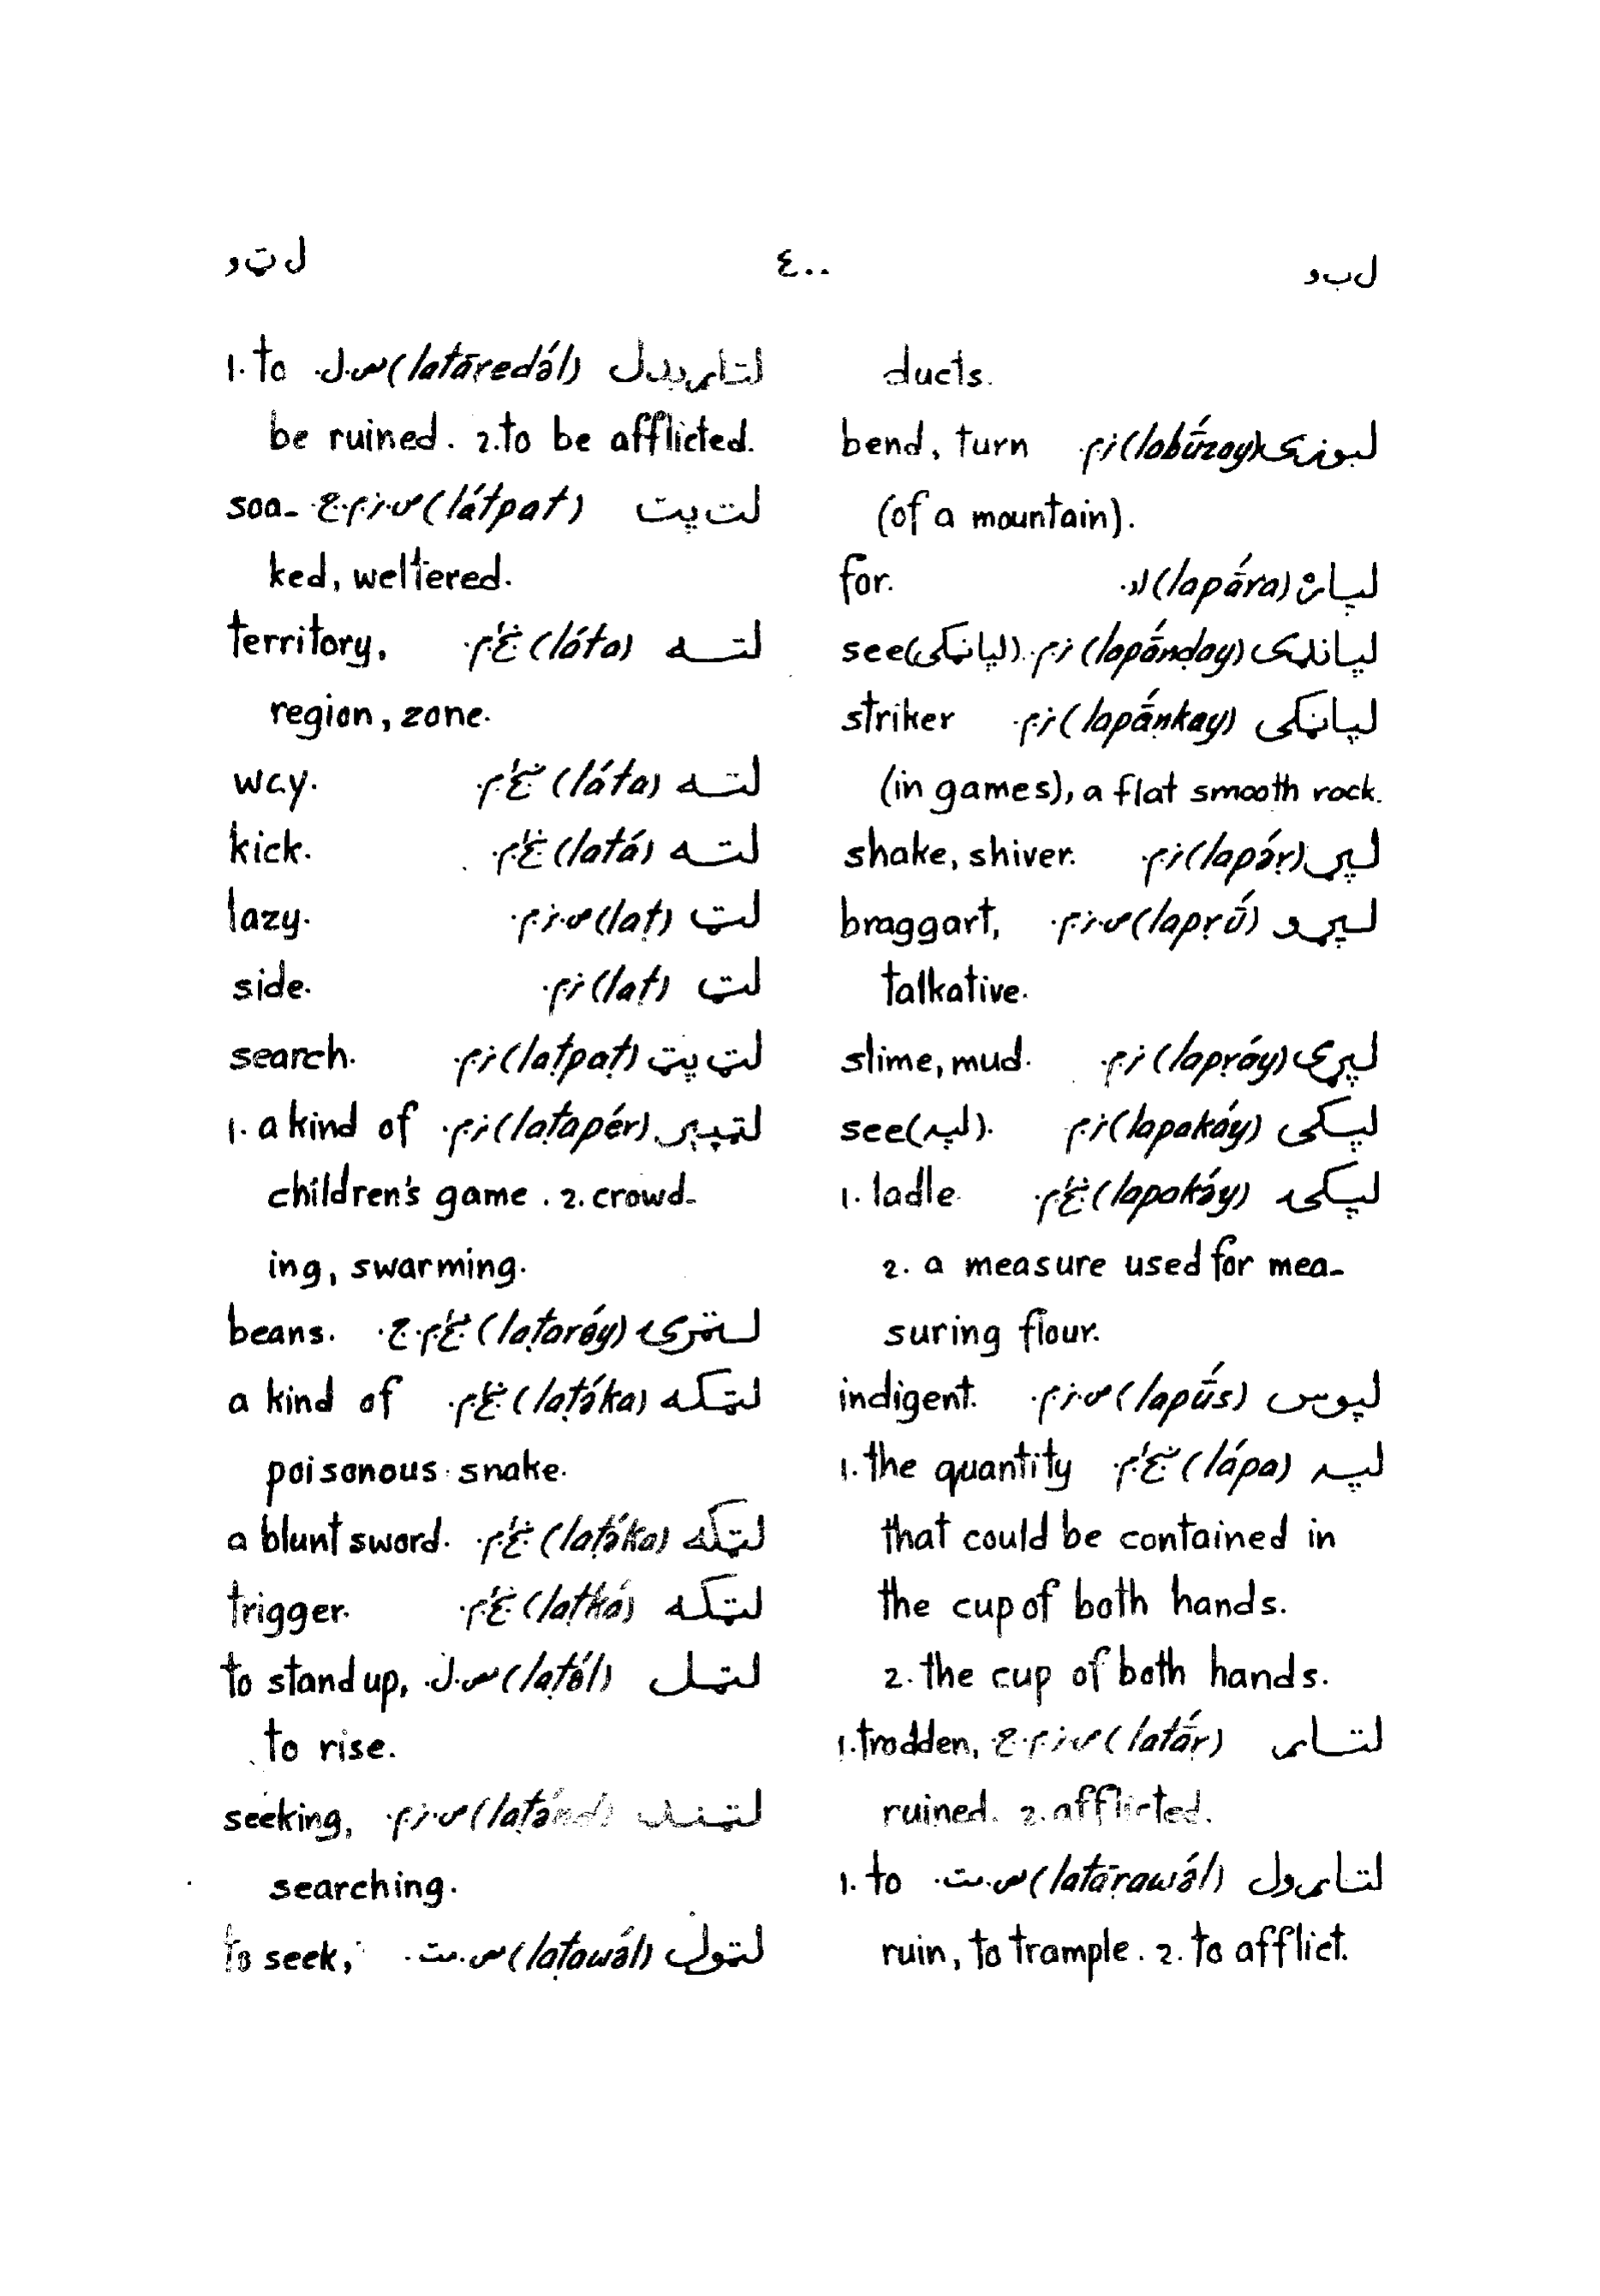 ل ب و
٤٠٠
ل ټ و
ducts.
لبوزی (labū́zay) ن.م. bend, turn
(of a mountain).
لپاره (lapā́ra) اد. for.
لپانډی (lapā́nḍay) ن.م. see (لپاڼکی).
لپاڼکی (lapā́ṇkay) ن.م. striker
(in games), a flat smooth rock.
لپړ (lapə́ṛ) ن.م. shake, shiver.
لپړو (lapṛū́) ص.ن.م. braggart,
talkative.
لپړی (lapṛáy) ن.م. slime, mud.
لپکی (lapakáy) ن.م. see (لپه).
لپکۍ (lapakə́y) ښځ.م. 1. ladle
2. a measure used for mea-
suring flour.
لپوس (lapū́s) ص.ن.م. indigent.
لپه (lápa) ښځ.م. 1. the quantity
that could be contained in
the cup of both hands.
2. the cup of both hands.
لتاړ (latā́ṛ) ص.ن.م.ج. 1. trodden,
ruined. 2. afflicted.
لتاړول (latāṛawə́l) مص.مت. 1. to
ruin, to trample. 2. to afflict.
لتاړېدل (latāṛedə́l) مص.ل. 1. to
be ruined. 2. to be afflicted.
لت پت (látpat) ص.ن.م.ج. soa-
ked, weltered.
لته (láta) ښځ.م. territory,
region, zone.
لته (láta) ښځ.م. way.
لته (latá) ښځ.م. kick.
لټ (laṭ) ص.ن.م. lazy.
لټ (laṭ) ن.م. side.
لټ پټ (laṭpaṭ) ن.م. search.
لټپېړ (laṭapéṛ) ن.م. 1. a kind of
children's game. 2. crowd-
ing, swarming.
لټرۍ (laṭarə́y) ښځ.م.ج. beans.
لټکه (laṭə́ka) ښځ.م. a kind of
poisonous snake.
لټکه (laṭə́ka) ښځ.م. a blunt sword.
لټکه (laṭká) ښځ.م. trigger.
لټل (laṭə́l) مص.ل. to stand up,
to rise.
لټند (laṭánd) ص.ن.م. seeking,
searching.
لټول (laṭawə́l) مص.مت. to seek,